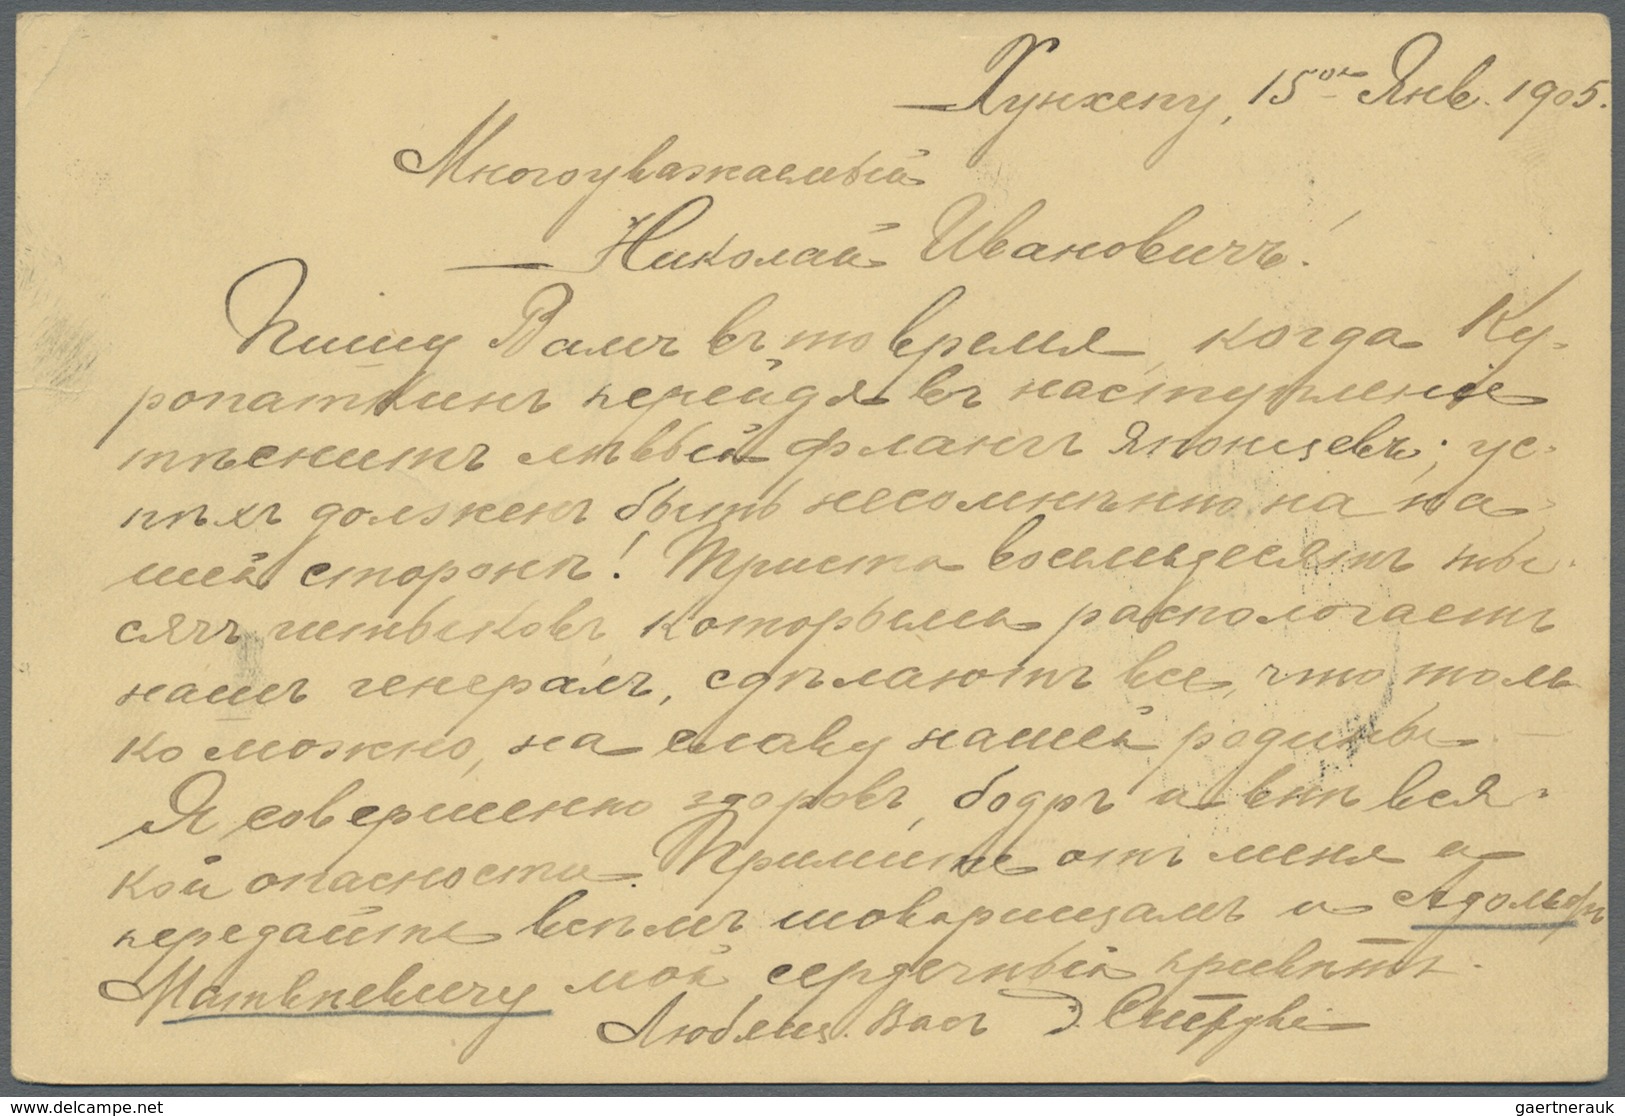 Хунхепу, 15ое Янв. 1905.
Многоуважаемый
Николай Ивановичъ!
Пишу Вамъ въ то время, когда Ку-
ропаткинъ перейдя въ наступленіе
тѣснитъ лѣвый флангъ Японцевъ; ус-
пѣхъ долженъ быть несомнѣнно на на-
шей сторонѣ! Триста восемьдесятъ ты-
сячъ штыковъ, которыми распологаетъ
нашъ генералъ, сдѣлаютъ все, что толь
ко можно, на славу нашей родины.
Я совершенно здоровъ, бодръ и внѣ вся-
кой опасности. Примите отъ меня и
передайте всѣмъ товарищамъ и Адольфу
Матвѣевичу мой сердечный привѣтъ.
Любящ. Васъ Э. Струве
delcampe.net
gaertnerauk